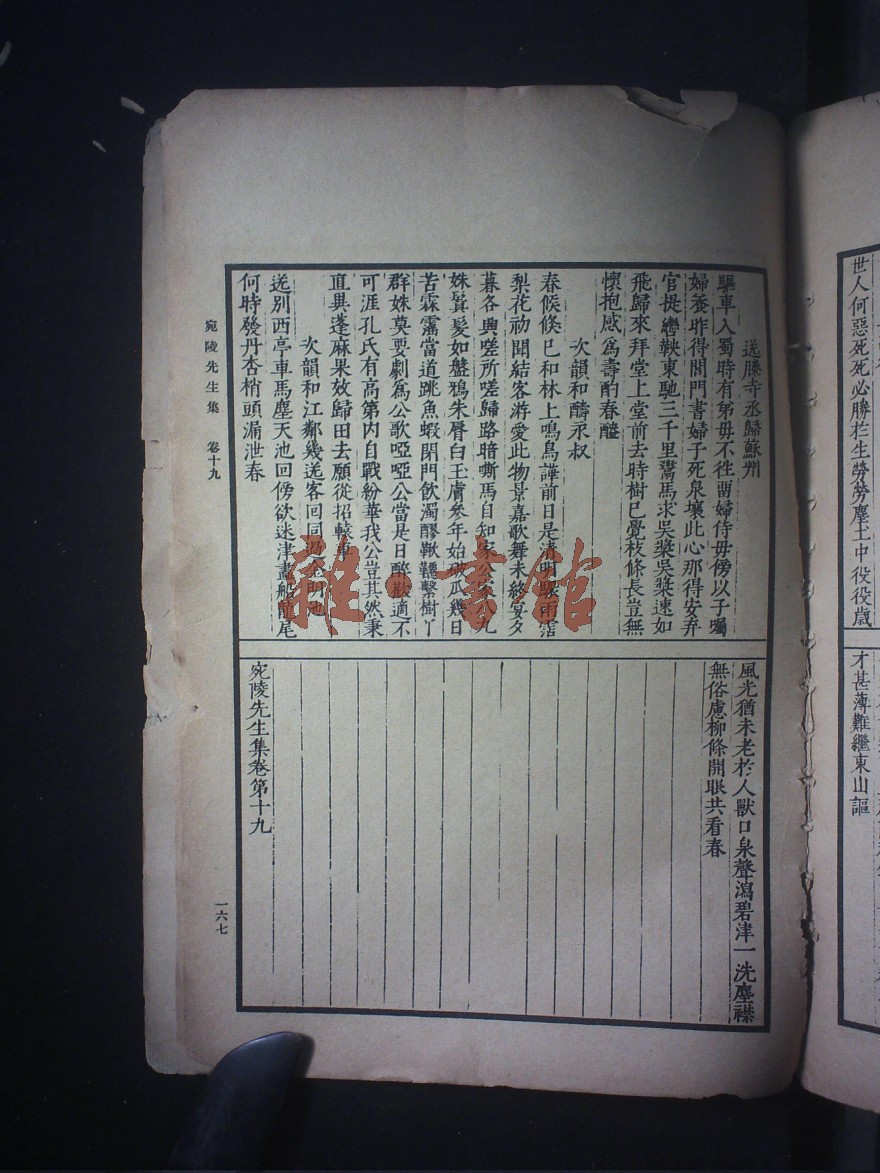 世人何惡死死必勝於生勞勞塵土中役役歲
才甚薄難繼東山謳
送滕寺丞歸蘇州
驅車入蜀時有弟毋不徃留婦侍毋傍以子囑
婦養昨得閞門書婦子死泉壤此心那得安弃
官提轡鞅東馳三千里鬻馬求吳槳吳槳速如
飛歸來拜堂上堂前去時樹已覺枝條長豈無
懷抱感為壽酌春醠
次韻和醻永叔
春候倏已和林上鳴鳥譁前日是清明驟雨霑
梨花初聞結客游愛此物景嘉歌舞未終宴夕
暮各興嗟所嗟歸路暗嘶馬自知家公家八九
姝鬒髮如盤鵶朱脣白玉膚參年始破瓜幾日
苦霖霪當道跳魚蝦閉門飲濁醪鞦韆繫樹丫
群姝莫要劇為公歌啞啞公當是日醉歡適不
可涯孔氏有高第内自戰紛華我公豈其然秉
直異蓬麻果效歸田去願從招轅車
次韻和江鄰幾送客回同過金明池
送別西亭車馬塵天池回傍欲迷津畫船龍尾
何時發丹杏梢頭漏泄春
風光猶未老於人獸口泉聲瀉碧津一洗塵襟
無俗慮柳條開眼共看春
宛陵先生集卷第十九
宛陵先生集 卷十九
一六七
雜·書館